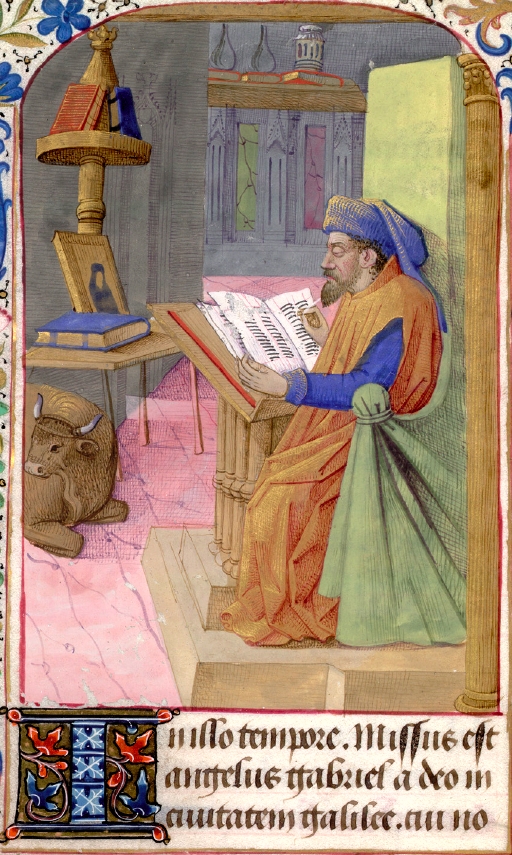 In illo tempore. Missus est
angelus gabriel a deo in
ciuitatem galilee. cui no